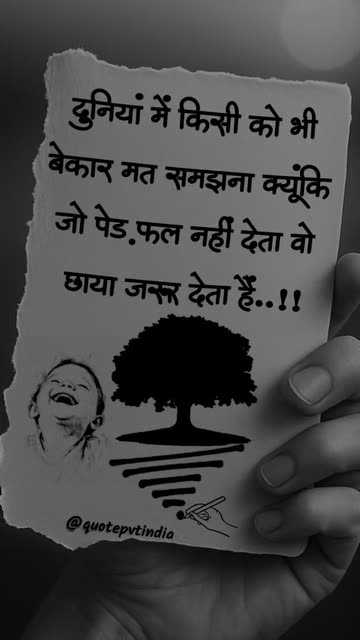 दुनियां में किसी को भी
बेकार मत समझना क्यूंकि
जो पेड.फल नहीं देता वो
छाया जरूर देता हैं..!!
@quotepvtindia